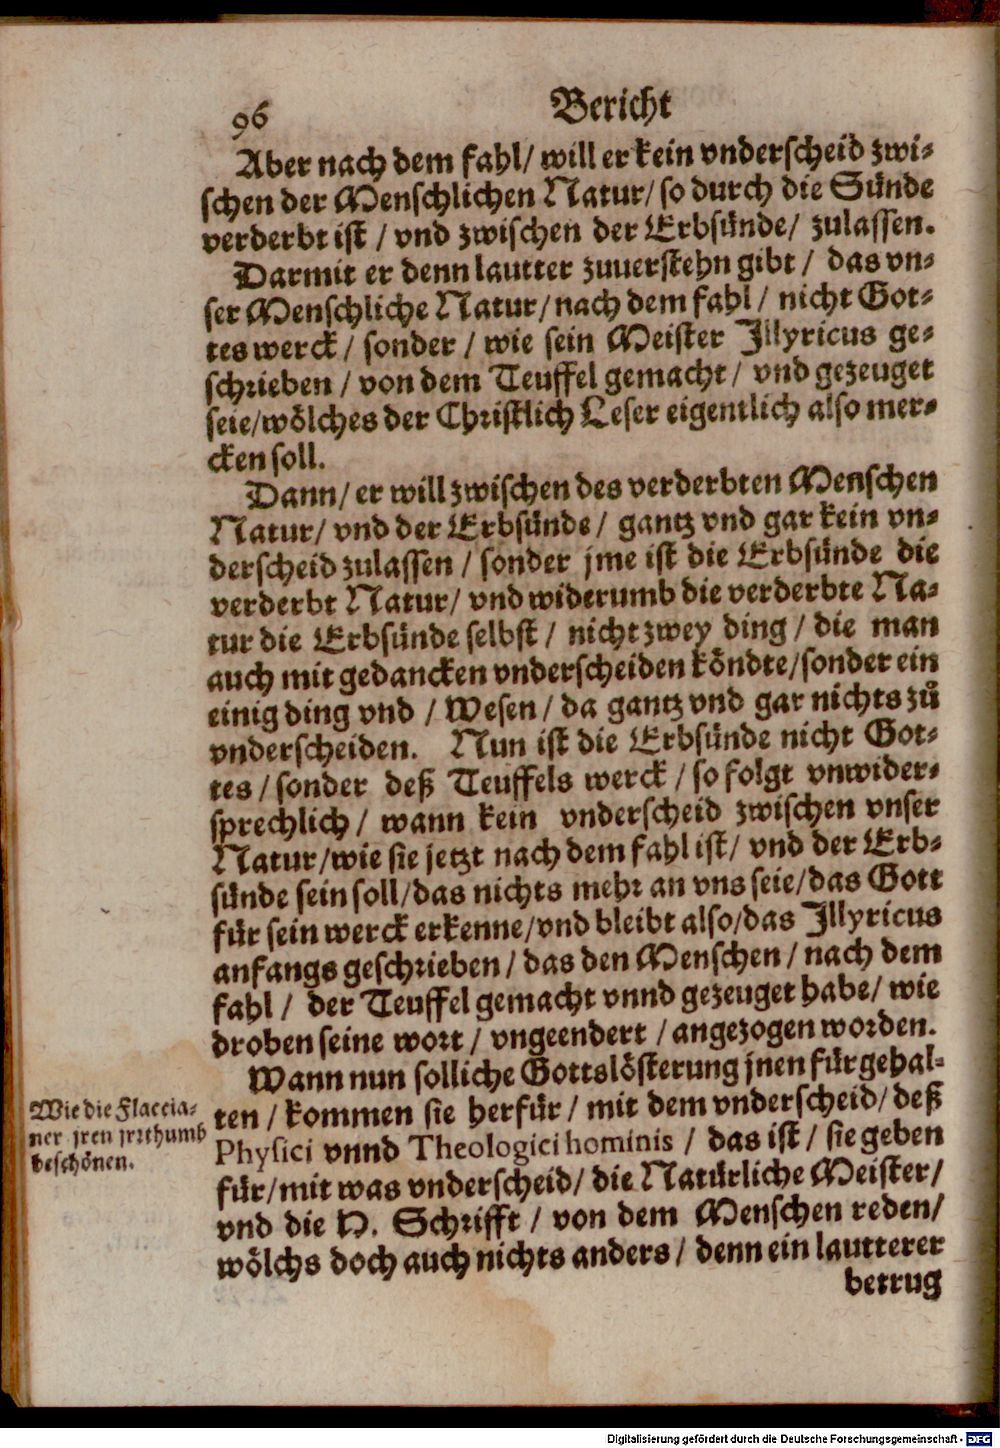 96
Bericht
Aber nach dem fahl/ will er kein vnderscheid zwi-
schen der Menschlichen Natur/ so durch die Sünde
verderbt ist / vnd zwischen der Erbsünde/ zulassen.
Darmit er denn lautter zuuerstehn gibt / das vn-
ser Menschliche Natur/ nach dem fahl / nicht Got-
tes werck / sonder / wie sein Meister Jllyricus ge-
schrieben / von dem Teuffel gemacht / vnd gezeuget
seie/wölches der Christlich Leser eigentlich also mer-
cken soll.
Dann/ er will zwischen des verderbten Menschen
Natur/ vnd der Erbsünde / gantz vnd gar kein vn-
derscheid zulassen / sonder jme ist die Erbsünde die
verderbt Natur/ vnd widerumb die verderbte Na-
tur die Erbsünde selbst / nicht zwey ding / die man
auch mit gedancken vnderscheiden köndte/sonder ein
einig ding vnd / Wesen / da gantz vnd gar nichts zů
vnderscheiden. Nun ist die Erbsünde nicht Got-
tes / sonder deß Teuffels werck / so folgt vnwider-
sprechlich / wann kein vnderscheid zwischen vnser
Natur/wie sie jetzt nach dem fahl ist/ vnd der Erb-
sünde sein soll/das nichts mehr an vns seie/das Gott
für sein werck erkenne/vnd bleibt also/das Jllyricus
anfangs geschrieben / das den Menschen / nach dem
fahl / der Teuffel gemacht vnnd gezeuget habe/ wie
droben seine wort / vngeendert / angezogen worden.
Wann nun solliche Gottslösterung jnen für gehal-
ten / kommen sie herfür / mit dem vnderscheid/ deß
Physici vnnd Theologici hominis / das ist / sie geben
für/mit was vnderscheid/ die Natürliche Meister/
vnd die H. Schrifft / von dem Menschen reden/
wölchs doch auch nichts anders / denn ein lautterer
betrug
Wie die Flaccia-
ner jren jrrthumb
beschönen.
Digitalisierung gefördert durch die Deutsche Forschungsgemeinschaft - DFG